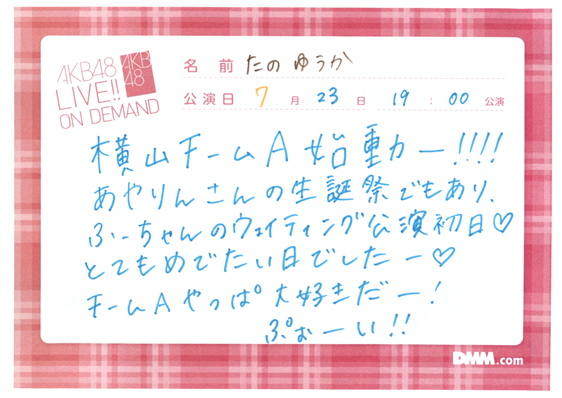 AKB48
LIVE!!
ON DEMAND
AKB
48
名前 たの ゆうか
公演日 7 月 23 日 19 : 00 公演
横山チームA始動ー!!!!
あやりんさんの生誕祭でもあり、
ふーちゃんのウェイティング公演初日♡
とてもめでたい日でしたー♡
チームAやっぱ大好きだー!
ぷぉーい!!
DMM.com